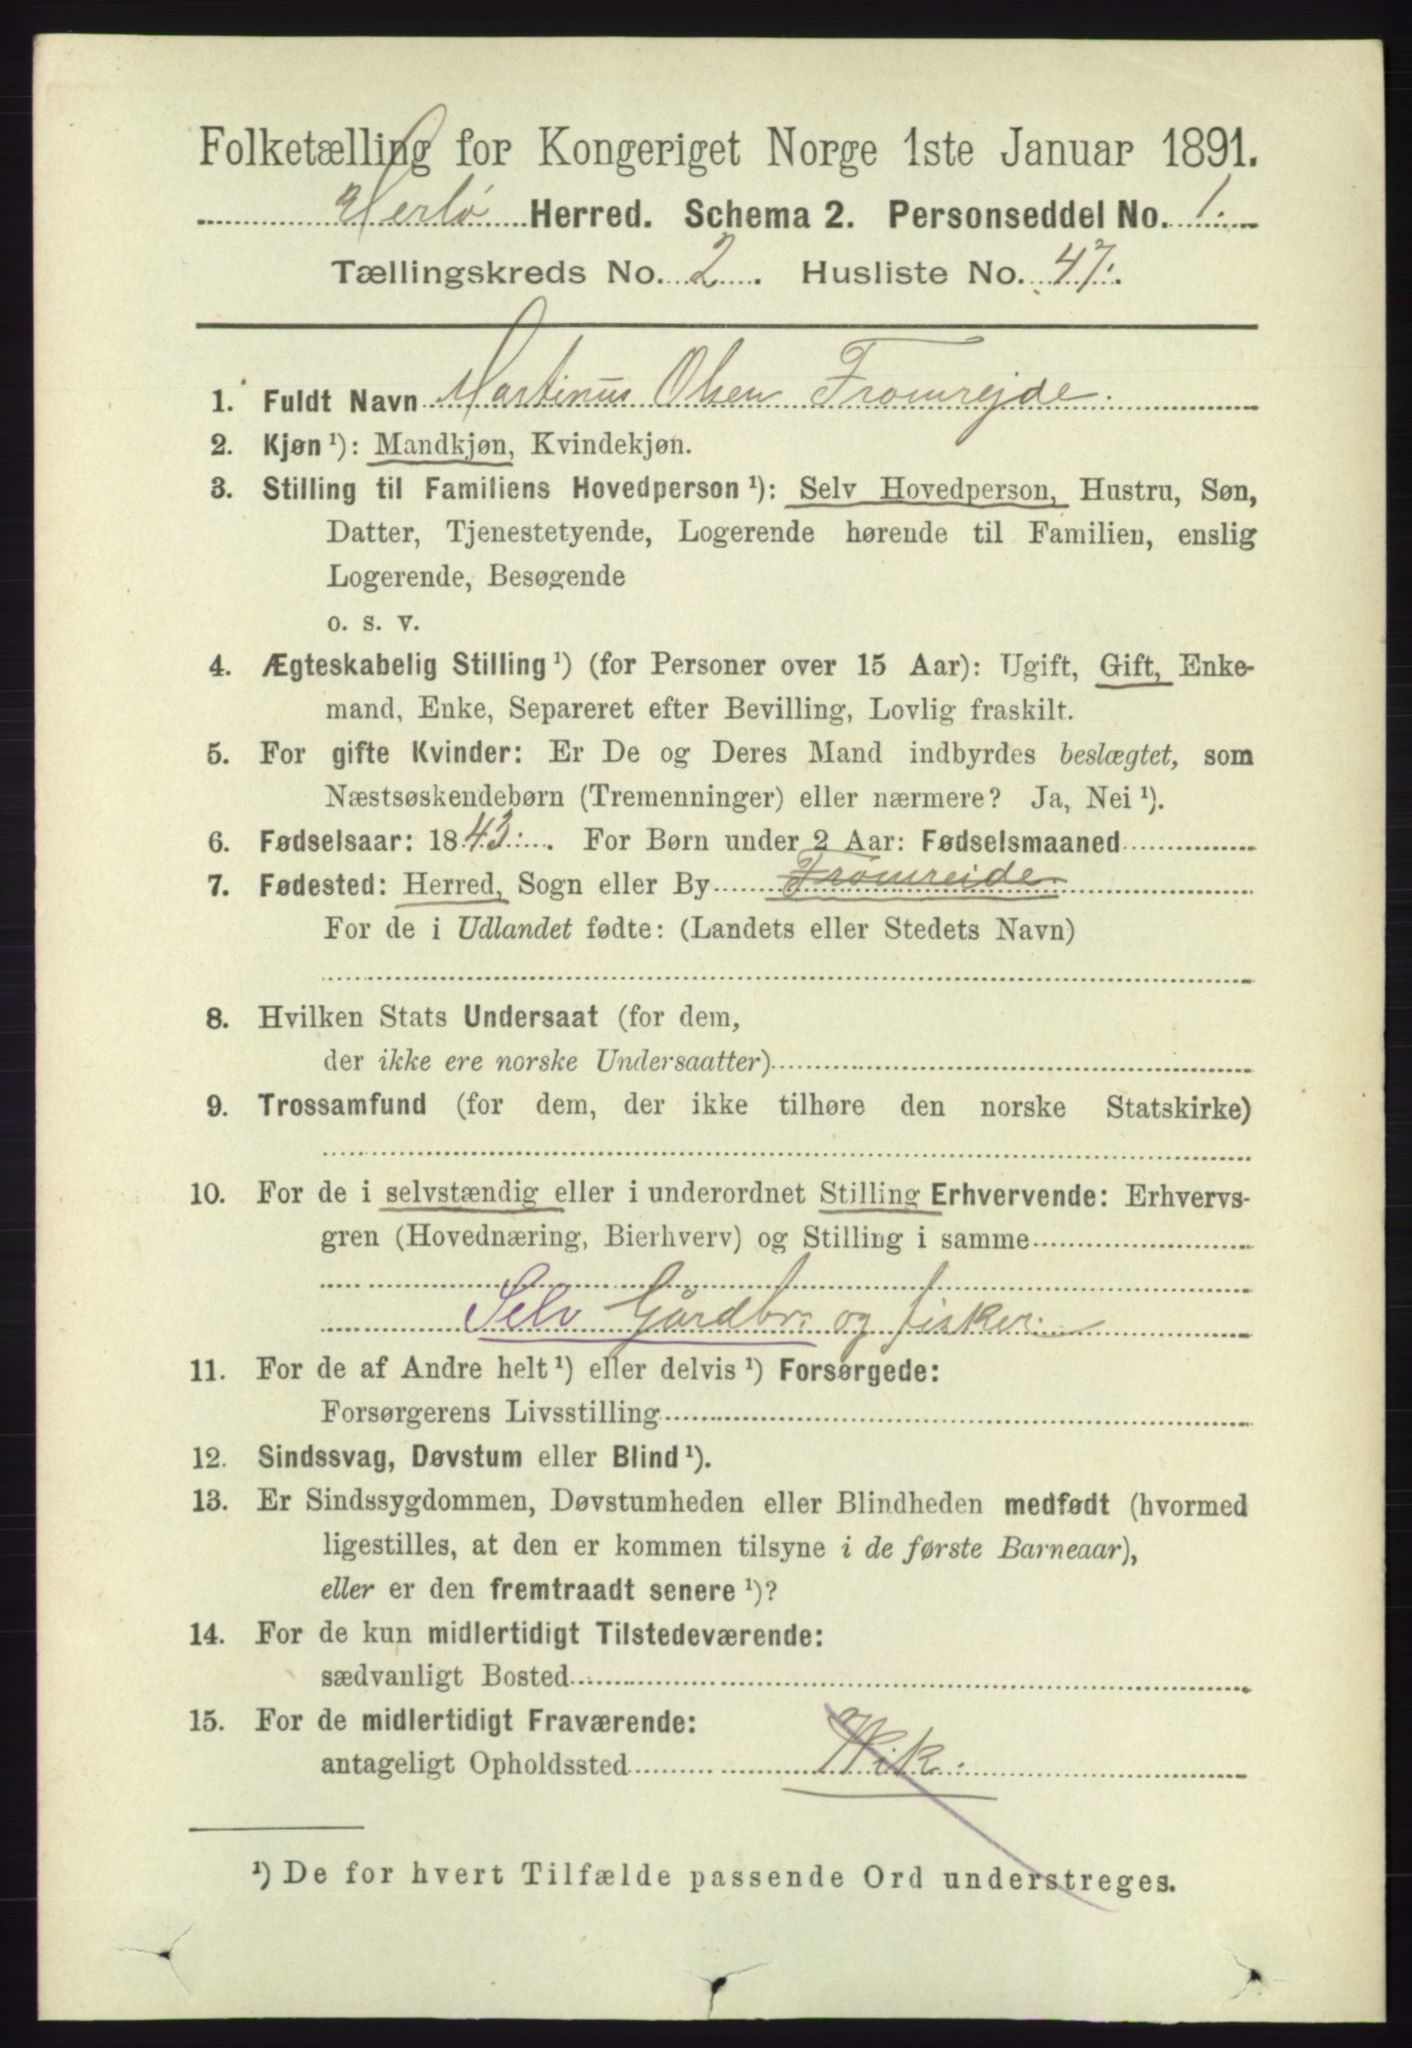 Folketælling for Kongeriget Norge 1ste Januar 1891.
Herlø Herred. Schema 2. Personseddel No. 1.
Tællingskreds No. 2. Husliste No. 47.
1. Fuldt Navn Martinus Olsen Fromrejde.
2. Kjøn ¹): Mandkjøn, Kvindekjøn.
3. Stilling til Familiens Hovedperson ¹): Selv Hovedperson, Hustru, Søn,
Datter, Tjenestetyende, Logerende hørende til Familien, enslig
Logerende, Besøgende
o. s. v.
4. Ægteskabelig Stilling ¹) (for Personer over 15 Aar): Ugift, Gift, Enke-
mand, Enke, Separeret efter Bevilling, Lovlig fraskilt.
5. For gifte Kvinder: Er De og Deres Mand indbyrdes beslægtet, som
Næstsøskendebørn (Tremenninger) eller nærmere? Ja, Nei ¹).
6. Fødselsaar: 1843. For Børn under 2 Aar: Fødselsmaaned
7. Fødested: Herred, Sogn eller By Fromreide
For de i Udlandet fødte: (Landets eller Stedets Navn)
8. Hvilken Stats Undersaat (for dem,
der ikke ere norske Undersaatter)
9. Trossamfund (for dem, der ikke tilhøre den norske Statskirke)
10. For de i selvstændig eller i underordnet Stilling Erhvervende: Erhvervs-
gren (Hovednæring, Bierhverv) og Stilling i samme
Selv Gårdbr. og fisker.
11. For de af Andre helt ¹) eller delvis ¹) Forsørgede:
Forsørgerens Livsstilling
12. Sindssvag, Døvstum eller Blind ¹).
13. Er Sindssygdommen, Døvstumheden eller Blindheden medfødt (hvormed
ligestilles, at den er kommen tilsyne i de første Barneaar),
eller er den fremtraadt senere ¹)?
14. For de kun midlertidigt Tilstedeværende:
sædvanligt Bosted
15. For de midlertidigt Fraværende:
antageligt Opholdssted Wik.
¹) De for hvert Tilfælde passende Ord understreges.